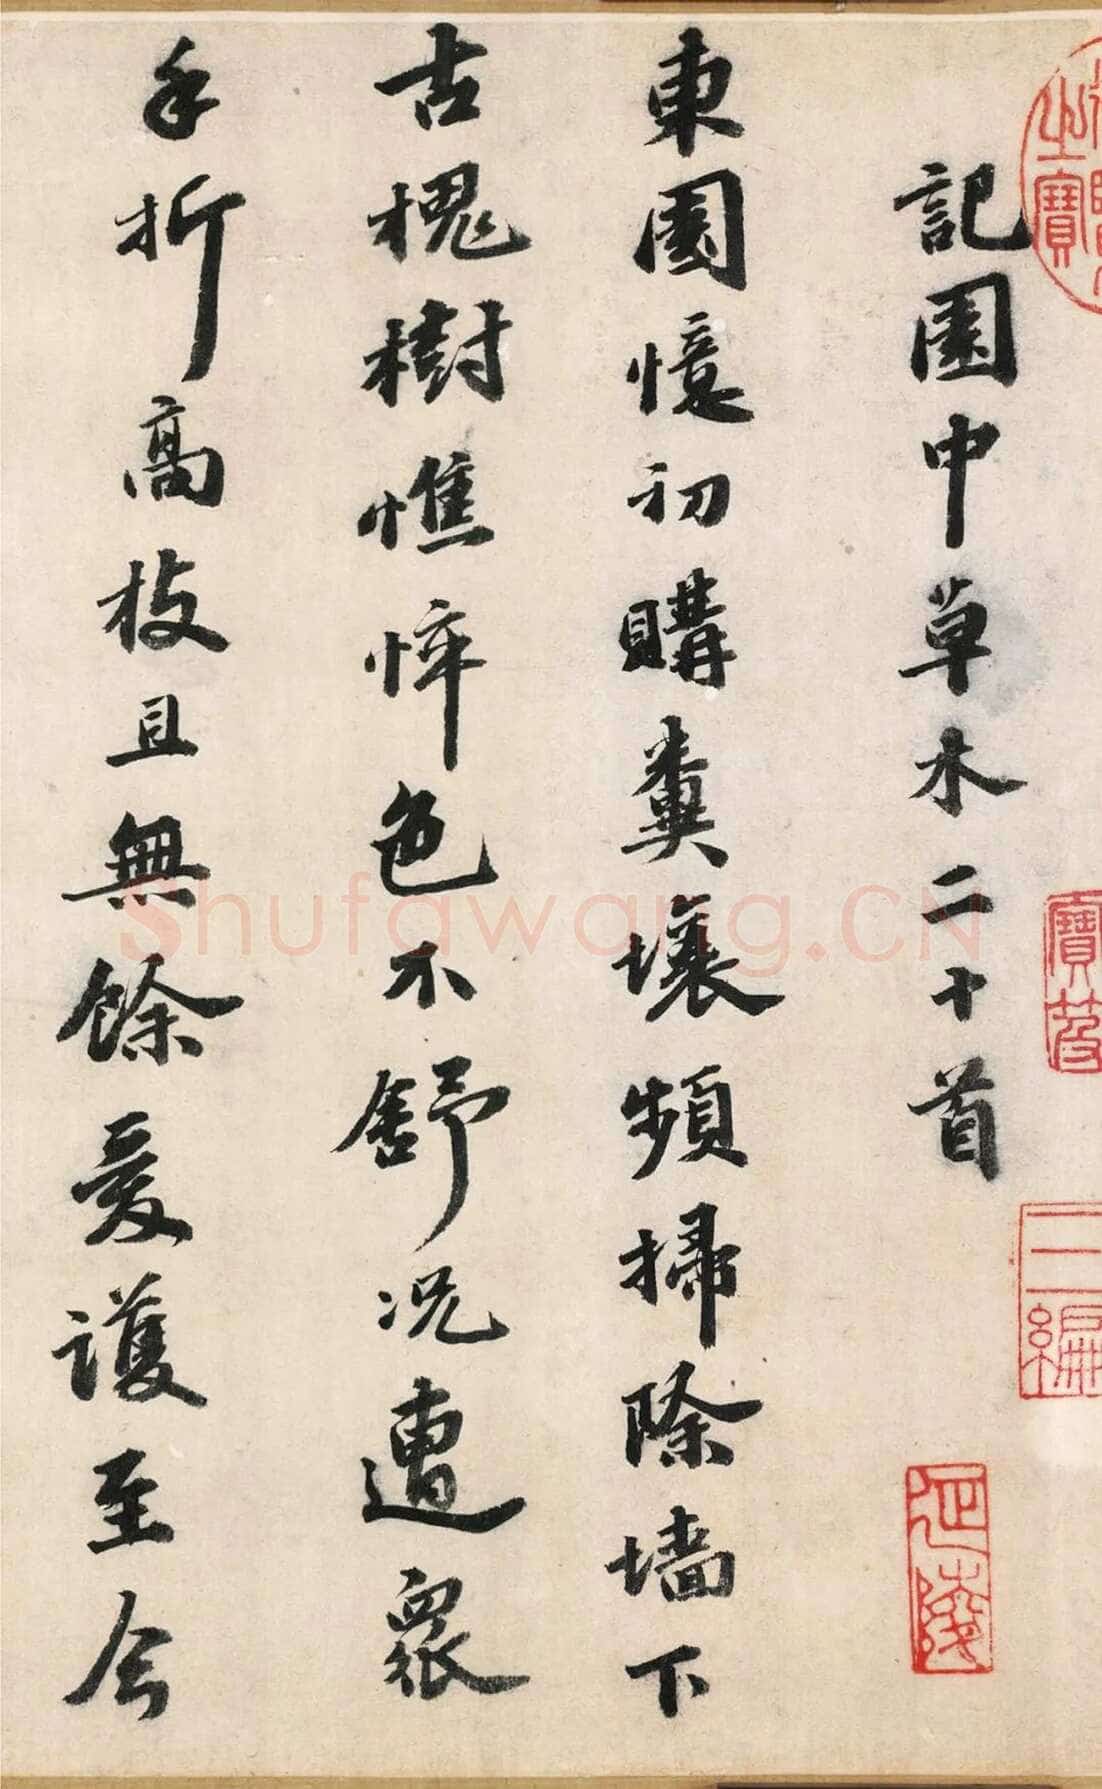 記園中草木二十首
東園憶初購糞壤頻掃除墻下
古槐樹憔悴色不舒況遭眾
手折高枝且無餘爱護至今
之寶
寶笈
三編
延陵
Shufawang.CN